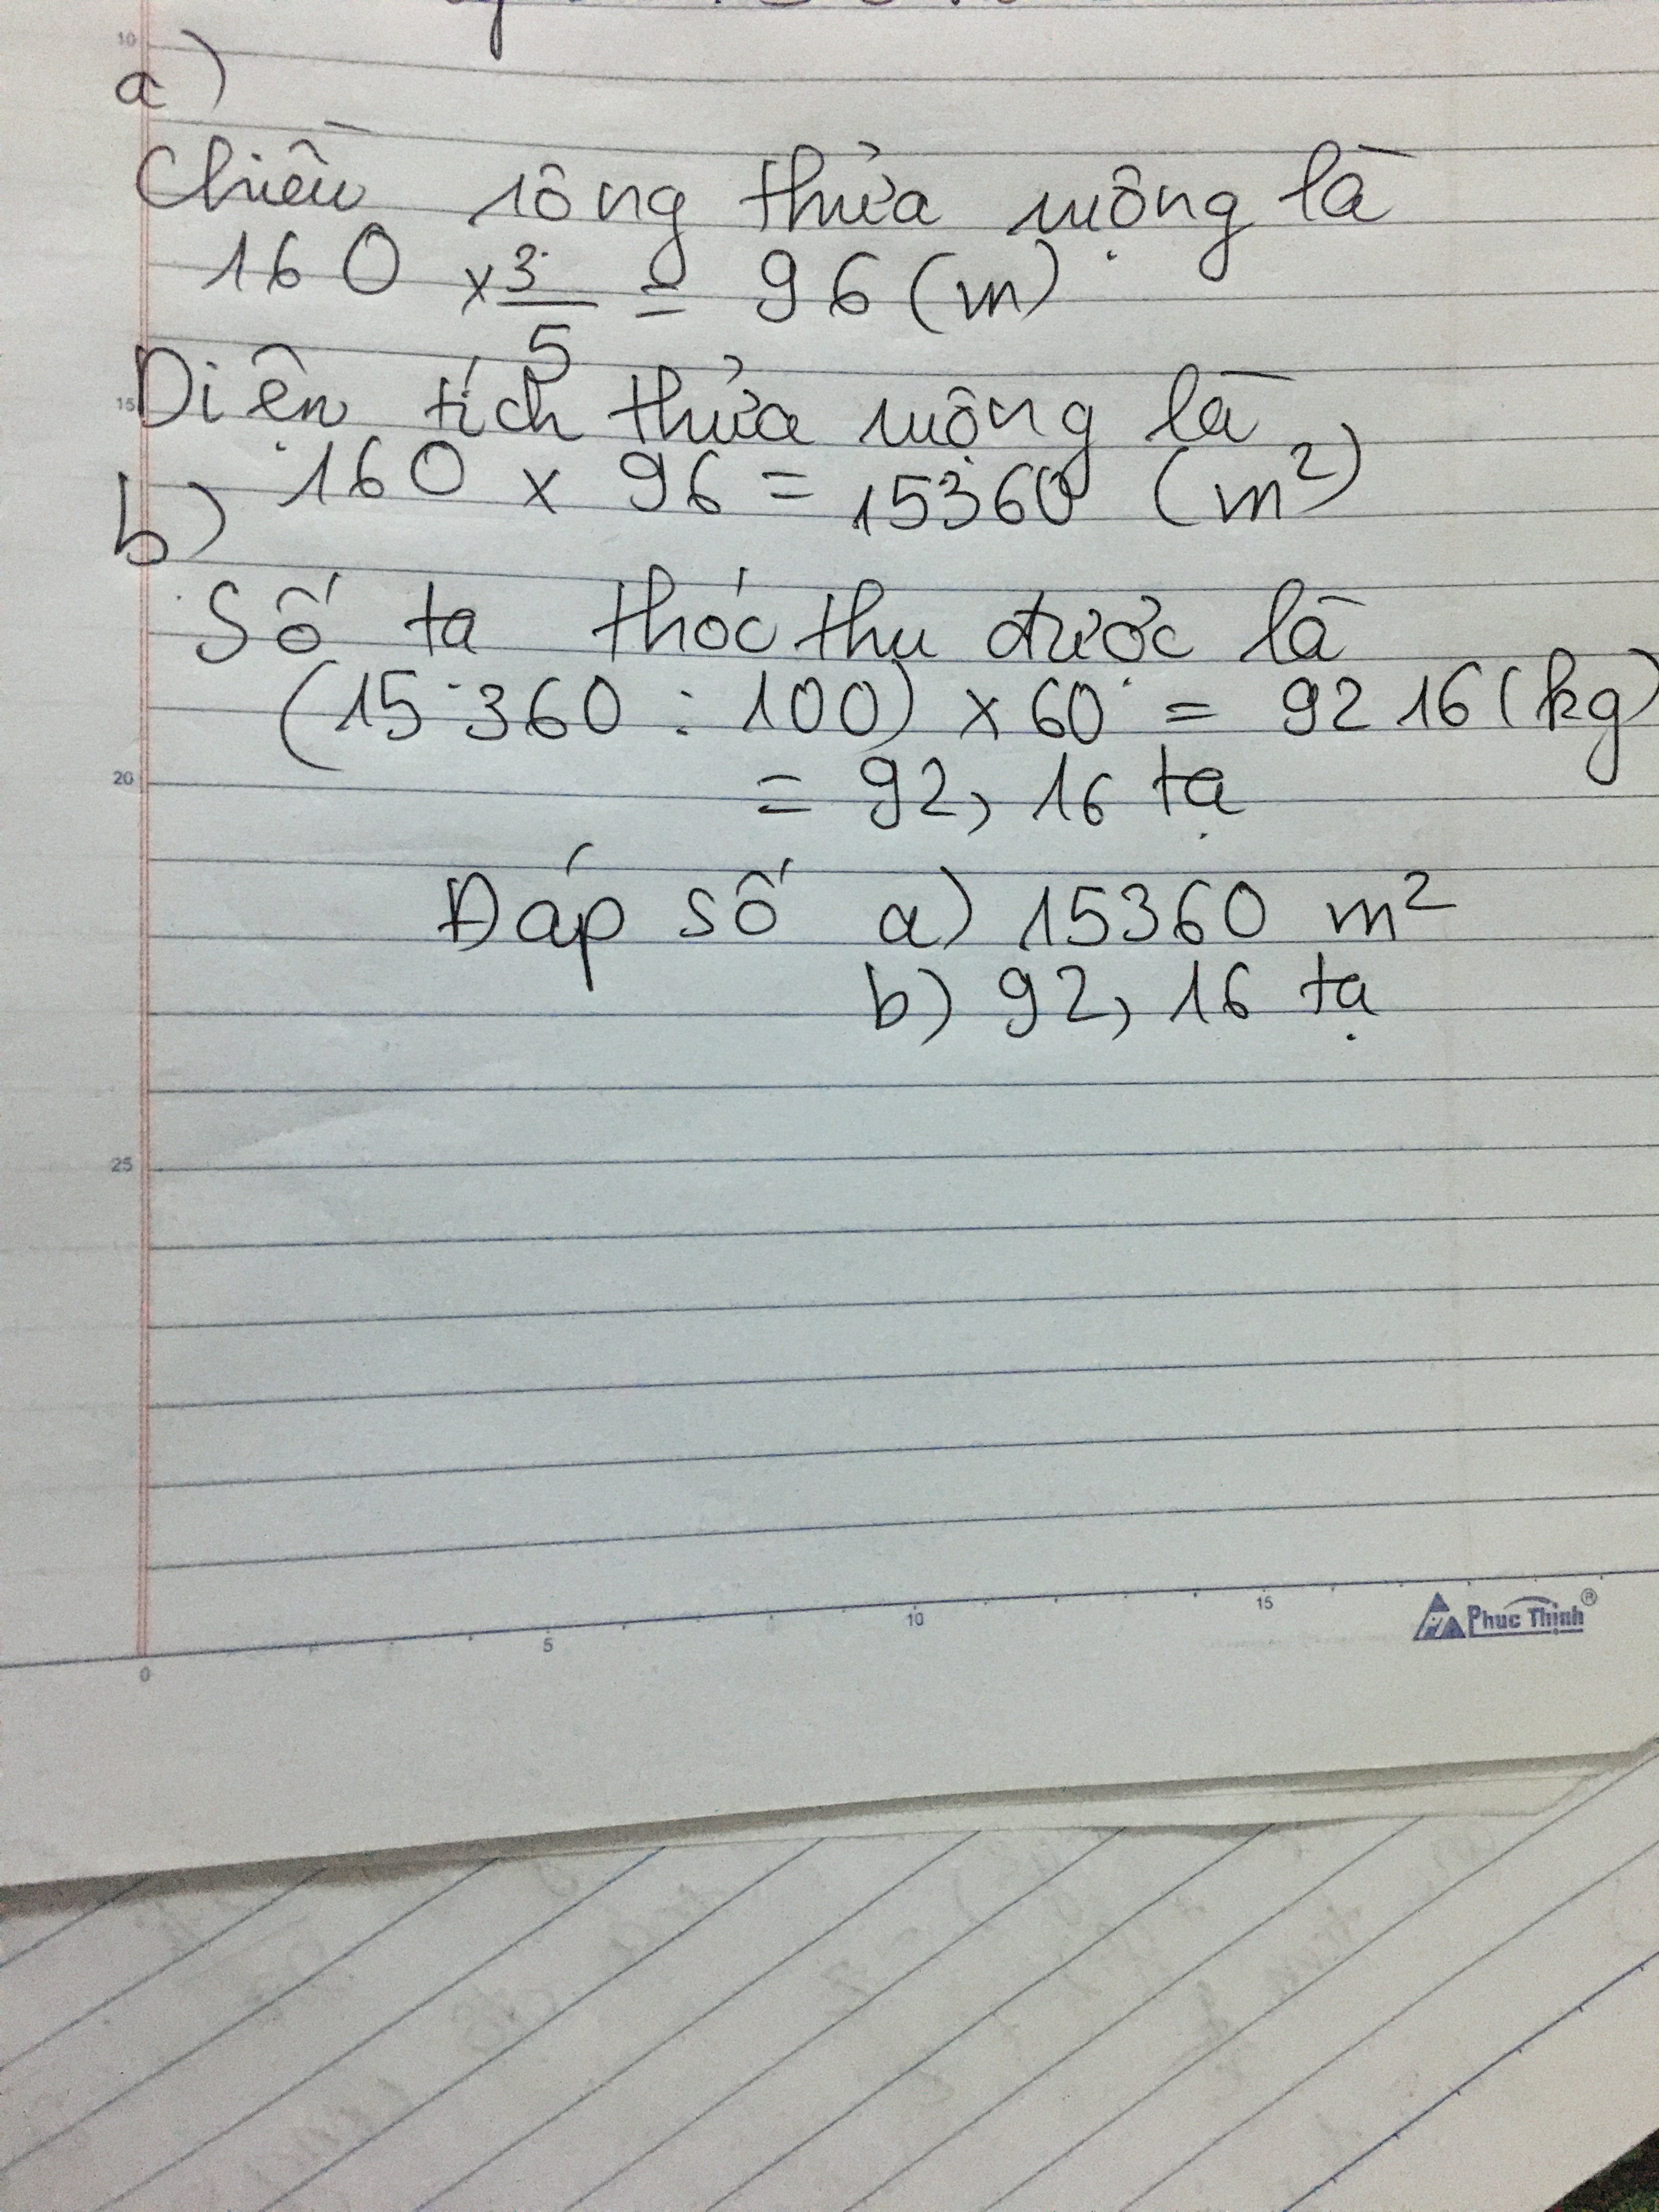 10
a)
Chiều rộng thửa ruộng là
160 x 3/5 = 96 (m)
15
Diện tích thửa ruộng là
160 x 96 = 15360 (m²)
b)
Số tạ thóc thu được là
(15360 : 100) x 60 = 9216 (kg)
20
= 92,16 tạ
Đáp số a) 15360 m²
b) 92,16 tạ
25
0 5 10 15
Phuc Thịnh ®